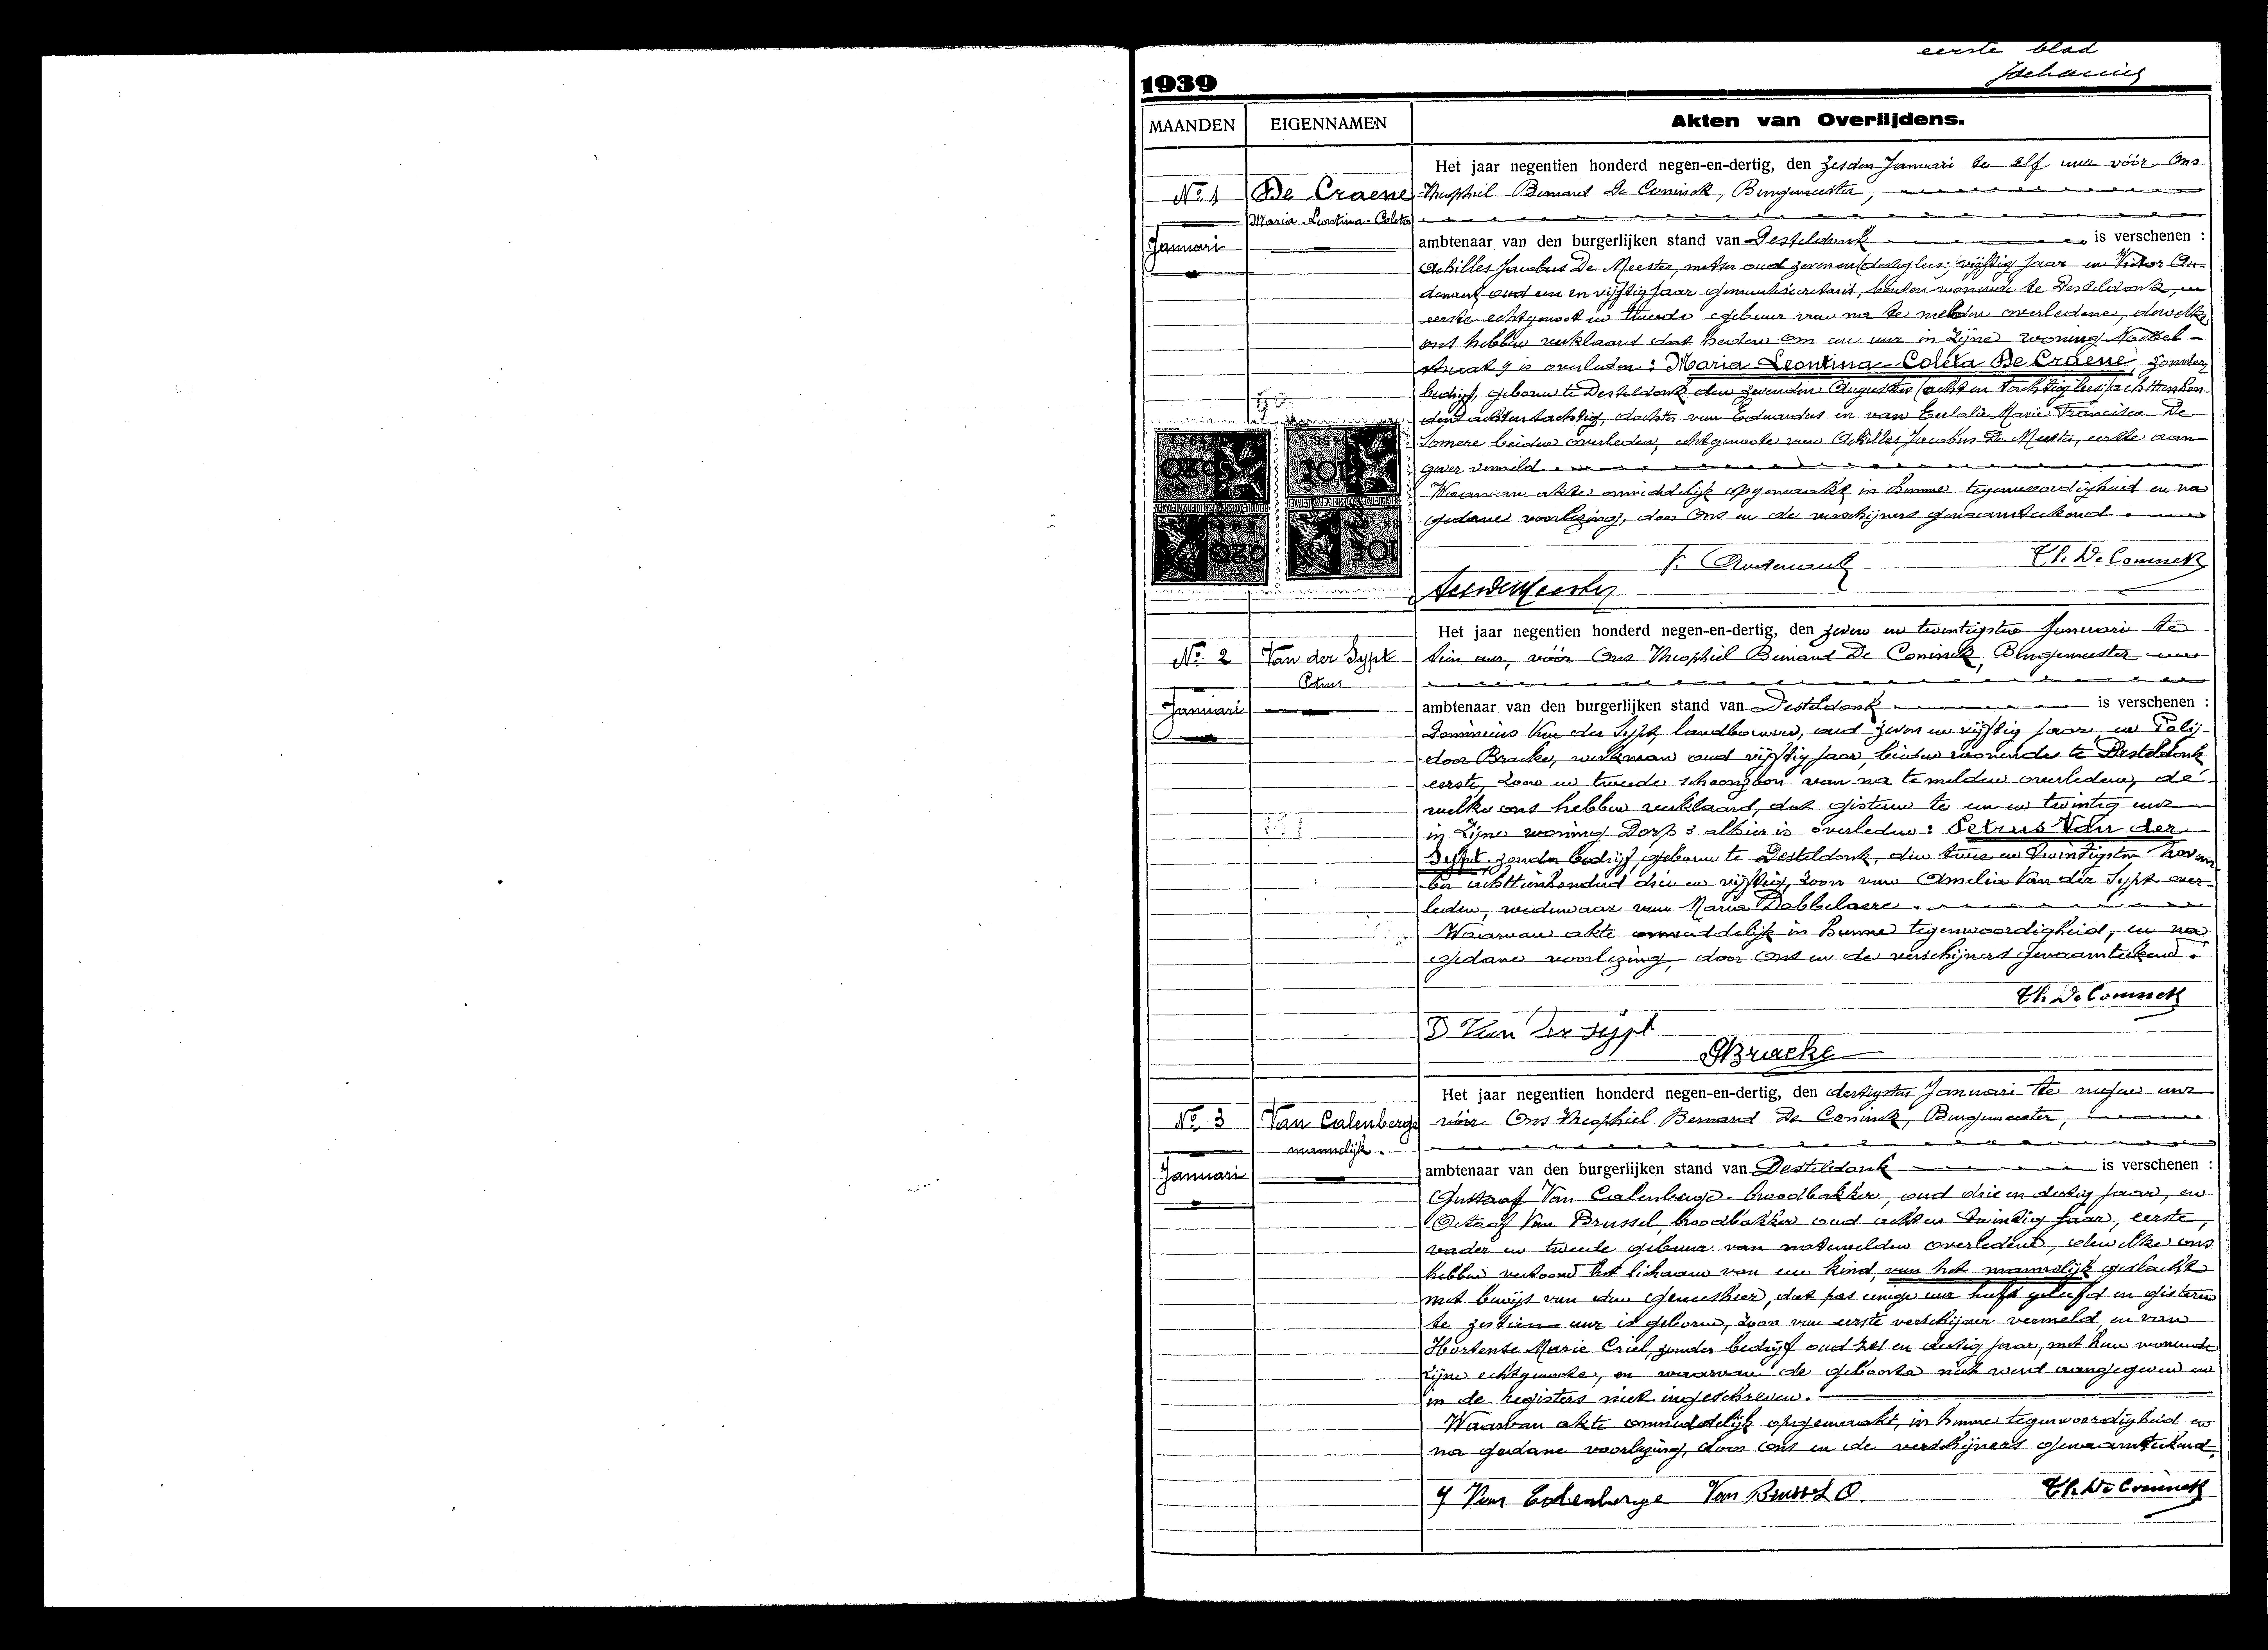 eerste blad
1939
MAANDEN EIGENNAMEN Akten van Overlijdens.
Het jaar negentien honderd negen-en-dertig, den zesden Januari te elf uur vóór Ons
No 1 De Craene Theophiel Bernard De Coninck, Burgemeester,
Maria-Leontina-Coleta
Januari ambtenaar van den burgerlijken stand van Desteldonk is verschenen :
Achilles Jacobus De Meester, metser oud zeven en (dertig lees: vijftig jaar en Victor Au-
denaert, oud een en vijftig jaar gemeentesecretaris, beiden wonende te Desteldonk, en
eerste echtgenoot en tweede gebuur van na te melden overledene, dewelke
ons hebben verklaard dat heden om een uur in zijne woning Moskel-
straat 9 is overleden : Maria-Leontina-Coleta De Craene, zonder
bedrijf, geboren te Desteldonk den zevenden Augustus (acht en tachtig lees: achttienhon-
derd acht en tachtig, dochter van Eduardus en van Eulalie Marie Francisca De
Somere beiden overleden, echtgenoote van Achilles Jacobus De Meester, eerste aan-
gever vermeld.
Waarvan akte onmiddelijk opgemaakt in hunne tegenwoordigheid en na
gedane voorlezing, door Ons en de verschijners genaamteekend.
V. Audenaert Th. De Coninck
Het jaar negentien honderd negen-en-dertig, den zeven en twintigsten Januari te
No 2 Van der Sypt tien uur, vóór Ons Theophiel Bernard De Coninck, Burgemeester
Petrus
Januari ambtenaar van den burgerlijken stand van Desteldonk is verschenen :
Dominicus Van der Sypt, landbouwer, oud zeven en vijftig jaar, en Polij-
door Bracke, werkman oud vijftig jaar, beiden wonende te Desteldonk
eerste, zoon en tweede schoonzoon van na te melden overleden, de-
welke ons hebben verklaard, dat gisteren te een en twintig uur
in zijne woning Dorp 3 alhier is overleden : Petrus Van der
Sypt, zonder bedrijf geboren te Desteldonk, den twee en twintigsten Novem-
ber achttienhonderd drie en vijftig, zoon van Amelia Van der Sypt over-
leden, weduwaar van Maria Dobbelaere.
Waarvan akte onmiddelijk in hunne tegenwoordigheid, en na
gedane voorlezing, door Ons en de verschijners genaamteekend.
Th. De Coninck
D Van der Sypt
Bracke
Het jaar negentien honderd negen-en-dertig, den dertigsten Januari te negen uur
No 3 Van Calenberge vóór Ons Theophiel Bernard De Coninck, Burgemeester,
mannelijk.
Januari ambtenaar van den burgerlijken stand van Desteldonk is verschenen :
Gustaaf Van Calenberge broodbakker, oud drie en dertig jaar, en
Octaaf Van Brussel, broodbakker oud acht en twintig jaar, eerste,
vader en tweede gebuur van natemelden overledene, dewelke ons
hebben vertoond het lichaam van een kind, van het mannelijk geslacht
met bewijs van den geneesheer, dat pas eenige uur heeft geleefd en gisteren
te zestien uur is geboren, zoon van eerste verschijner vermeld, en van
Hortense Marie Criel, zonder bedrijf oud zes en dertig jaar, met hem wonende
zijne echtgenoote, en waarvan de geboorte niet werd aangegeven en
in de registers niet ingeschreven.
Waarvan akte onmiddelijk opgemaakt, in hunne tegenwoordigheid en
na gedane voorlezing, door Ons en de verschijners genaamteekend.
G Van Calenberge Van Brussel O. Th. De Coninck